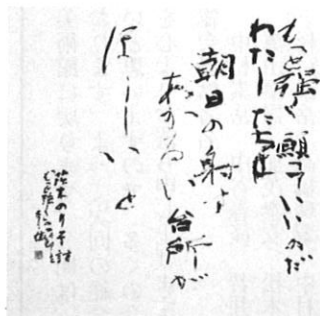 もっと強く願っていいのだ
わたしたちは
朝日の射す
あかるい台所が
ほしいと
茨木のり子 詩